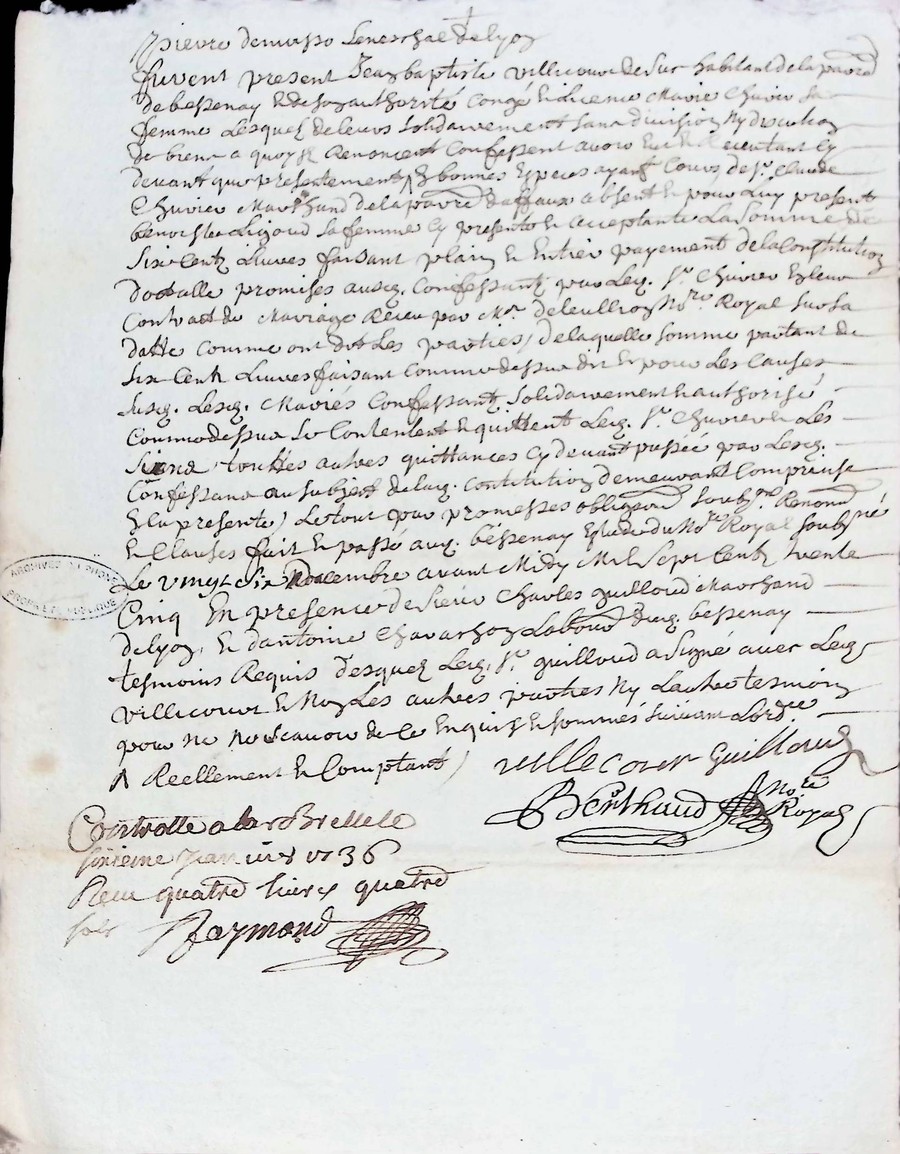 pierre demasso Seneschal de lyon
furent present Jean baptiste villecourt de Sur habitant de la parre
de bessenay Et de son authorité Congé Et licence Marie Chuvier Sa
femme Lesquelz de leurs Solidairement Sans division Ny discution
de biens a quoy ilz Renoncent Confessent avoir Eu Et Receu tant Cy
devant que presentement ^ En bonnes Especes ayant Cours de Sr. Claude
Chuvier Marchand de la parre daffaux absent Et pour Luy present
benoiste Ligoud Sa femme Cy presente Et acceptante La Somme de
Six Centz Livres faisant plain Et Entier payement de la Constitution
dotalle promises ausd. Confessantz par Led. Sr. Chuvier En leur
Contract de Mariage Receu par Mr. deleullion Nore Royal Sur Sa
datte Comme ont dit Les parties, de laquelle Somme partant de
Six Centz Livres faisant Comme dessus dit Et pour Les Causes
Susd. Lesd. Mariés Confessantz Solidairement authorisé
Comme dessus Se Contentent Et quittent Led. Sr. Chuvier Et Les
Siens touttes autres quittances Cy devant passée par Lesd.
Confessans au Subject de lad. Contitution demeurant Comprise
En la presente, Le tout par promesses obligaons Soubmons Renonons
Et Clauses fait Et passé aud. bessenay Etude du Nore Royal Soubsné
Le vingt Six Decembre avant Midy Mil Sept Centz trente
Cinq En presence de Sieur Charles guilloud Marchand
de lyon, Et dantoine Chavachon Laboureur dud. bessenay
tesmoins Requis desquelz Led. Sr. guilloud a Signé avec Led.
villecourt Et Non Les autres parties Ny L'autre tesmoin
pour ne Scavoir de Ce Enquis Et Sommés Suivant L'ordce
^ Reellement Et Comptant,
villecourt guilloud
Berthaud Nore Royal
Controlle a la rBrelle le
sixieme Janvier 1736
Receu quatre livres quatre
sols Raymond
ARCHIVES
PUBLIQUE